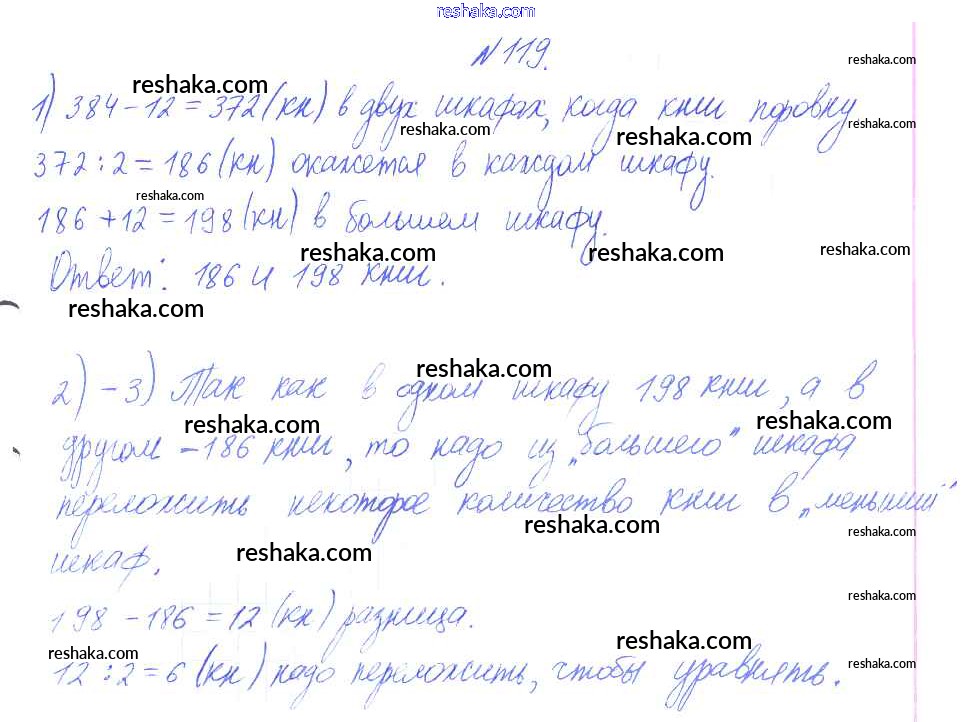 reshaka.com
№119.
reshaka.com
reshaka.com
1) 384-12=372(кн) в двух шкафах, когда книг поровну
reshaka.com
reshaka.com
reshaka.com
372:2=186(кн) окажется в каждом шкафу.
reshaka.com
186+12=198(кн) в большем шкафу.
reshaka.com
reshaka.com
reshaka.com
Ответ: 186 и 198 книг.
reshaka.com
reshaka.com
2)-3) Так как в одном шкафу 198 книг, а в
reshaka.com
reshaka.com
другом -186 книг, то надо из „большего" шкафа
переложить некоторое количество книг в „меньший"
reshaka.com
reshaka.com
reshaka.com
шкаф.
reshaka.com
198-186=12(кн) разница.
reshaka.com
reshaka.com
reshaka.com
12:2=6(кн) надо переложить, чтобы уравнять.